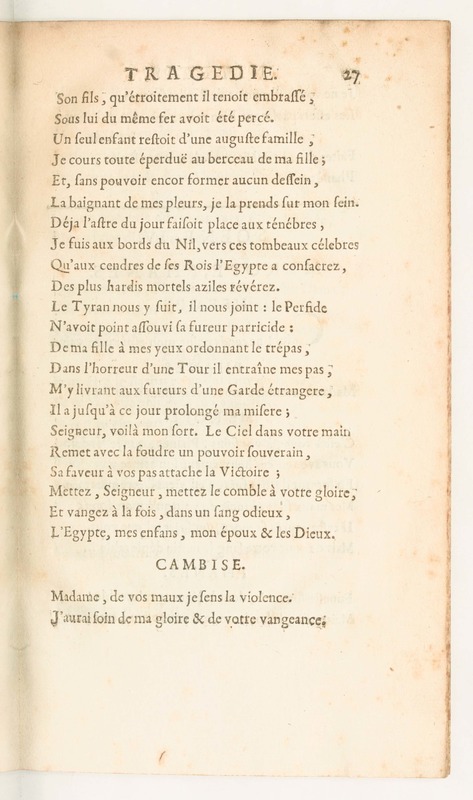 TRAGEDIE. 27
Son fils, qu'étroitement il tenoit embraſſé,
Sous lui du même fer avoit été percé.
Un ſeul enfant reſtoit d'une auguſte famille,
Je cours toute éperduë au berceau de ma fille;
Et, ſans pouvoir encor former aucun deſſein,
La baignant de mes pleurs, je la prends ſur mon ſein.
Déja l'aſtre du jour faiſoit place aux ténébres,
Je fuis aux bords du Nil, vers ces tombeaux célebres
Qu'aux cendres de ſes Rois l'Egypte a conſacrez,
Des plus hardis mortels aziles révérez.
Le Tyran nous y ſuit, il nous joint : le Perfide
N'avoit point aſſouvi ſa fureur parricide :
De ma fille à mes yeux ordonnant le trépas,
Dans l'horreur d'une Tour il entraîne mes pas,
M'y livrant aux fureurs d'une Garde étrangere,
Il a juſqu'à ce jour prolongé ma miſere;
Seigneur, voilà mon ſort. Le Ciel dans votre main
Remet avec la foudre un pouvoir ſouverain,
Sa faveur à vos pas attache la Victoire;
Mettez, Seigneur, mettez le comble à votre gloire,
Et vangez à la fois, dans un ſang odieux,
L'Egypte, mes enfans, mon époux & les Dieux.
CAMBISE.
Madame, de vos maux je ſens la violence.
J'aurai ſoin de ma gloire & de votre vangeance.